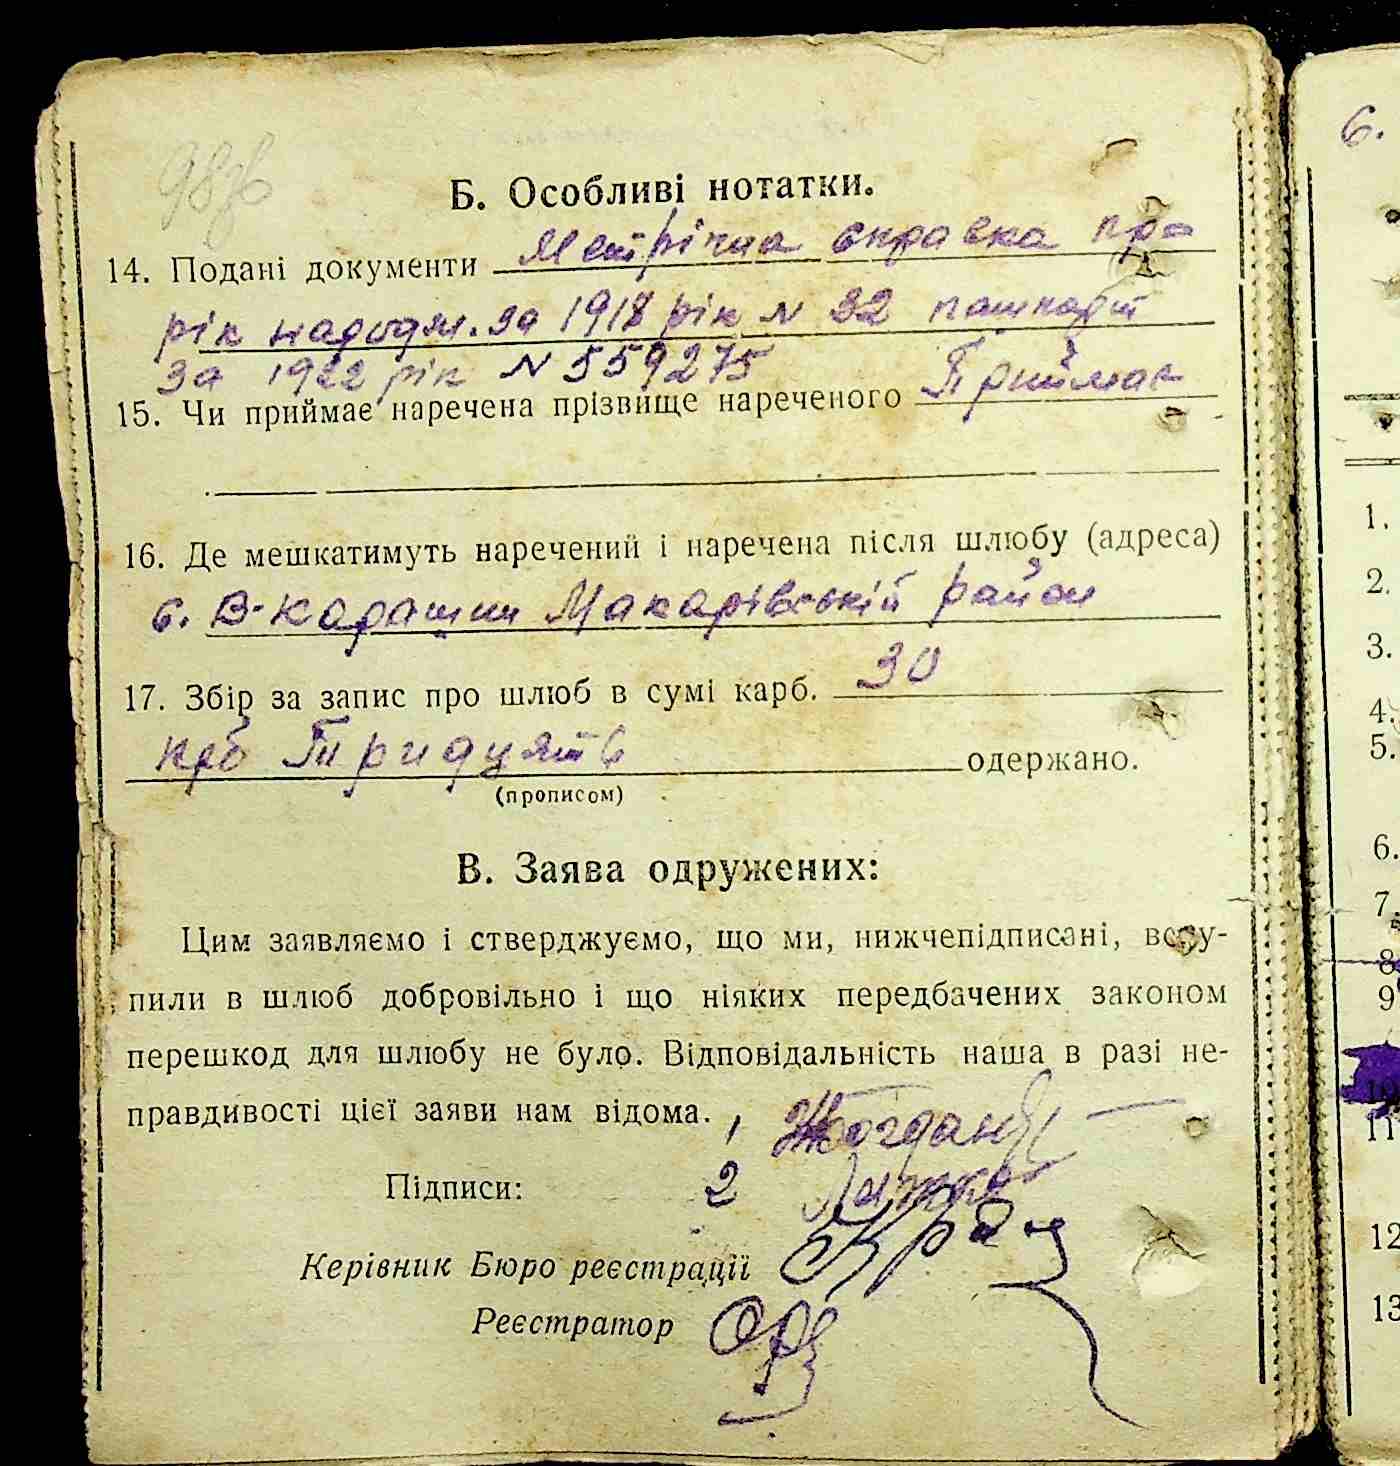 Б. Особливі нотатки.
14. Подані документи Метрічна справка про
рік народж. за 1918 рік № 32 пашпорт
за 1922 рік № 559275
15. Чи приймає наречена прізвище нареченого Приймає
16. Де мешкатимуть наречений і наречена після шлюбу (адреса)
с. В-Карашин Макарівській район
17. Збір за запис про шлюб в сумі карб. 30
крб Тридцять одержано.
(прописом)
В. Заява одружених:
Цим заявляємо і стверджуємо, що ми, нижчепідписані, всту-
пили в шлюб добровільно і що ніяких передбачених законом
перешкод для шлюбу не було. Відповідальність наша в разі не-
правдивості цієї заяви нам відома.
1
Підписи: 2
Керівник Бюро реєстрації
Реєстратор
6.
1.
2.
3.
4.
5.
6.
7.
8
9
11
12
13